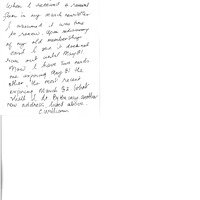 When I received a renewal
form in my March newsletter
I assumed I was time
to renew. Upon receiving
of my old membership
card I see it does not
run out until May 81.
Now I have two cards
one expiring May 81 the
other, the most recent
expiring March 82. What
shall I do
new address label above.